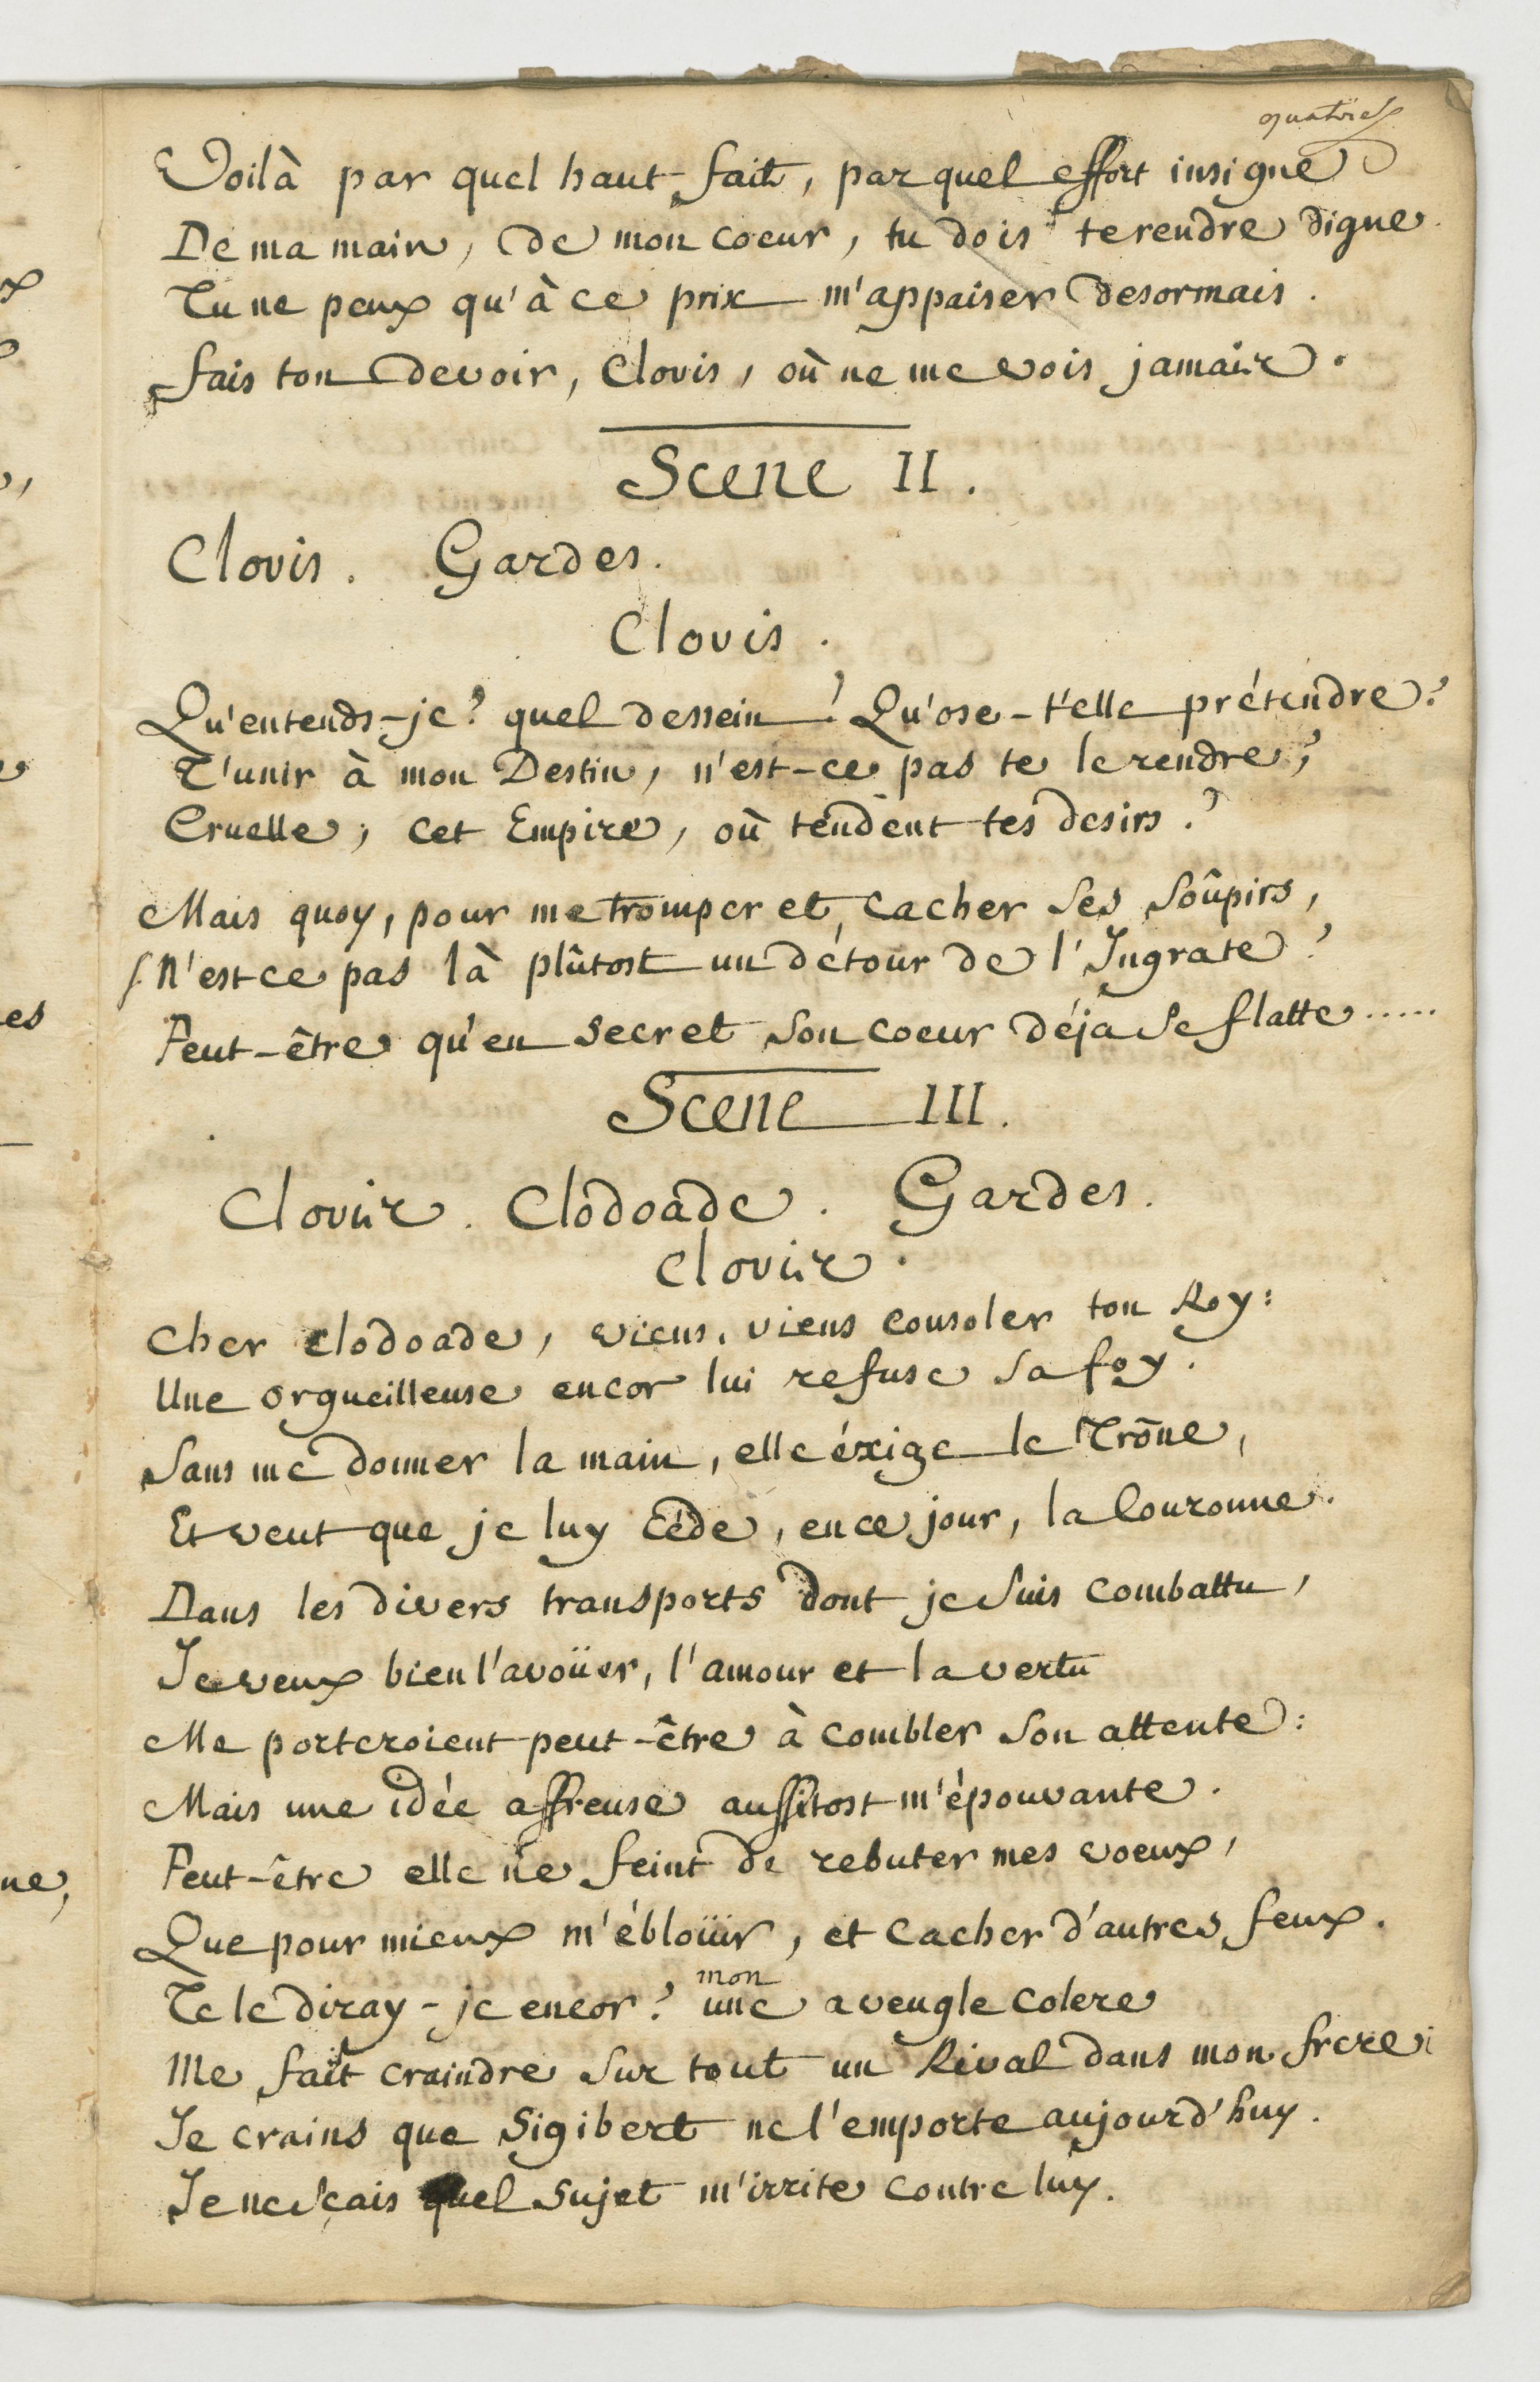 quatrie
Voilà par quel haut-fait, par quel effort insigne
De ma main, de mon coeur, tu dois te rendre digne.
Tu ne peux qu'à ce prix m'appaiser desormais.
fais ton devoir, Clovis, où ne me vois jamais.
Scene II.
Clovis. Gardes.
Clovis.
Qu'entends-je? quel dessein! Qu'ose-t'elle prétendre?
T'unir à mon Destin, n'est-ce pas te le rendre,
Cruelle, cet Empire, où tendent tes desirs?
Mais quoy, pour me tromper et cacher ses soûpirs,
N'est-ce pas là plûtost un détour de l'Ingrate?
Peut-être qu'en secret son coeur déja se flatte.....
Scene III.
Clovis. Clodoade. Gardes.
Clovis.
Cher Clodoade, viens, viens consoler ton Roy:
Une orgueilleuse encor lui refuse sa foy.
Sans me donner la main, elle éxige le Trône,
Et veut que je luy cède, en ce jour, la Couronne.
Dans les divers transports dont je suis combattu,
Je veux bien l'avoüer, l'amour et la vertu
Me porteroient peut-être à combler son attente:
Mais une idée affreuse aussitost m'épouvante.
Peut-être elle ne feint de rebuter mes voeux,
Que pour mieux m'ébloüir, et cacher d'autres feux.
mon
Te le diray-je encor? une aveugle colere
Me fait craindre sur tout un Rival dans mon frere;
Je crains que Sigibert ne l'emporte aujourd'huy.
Je ne sçais quel sujet m'irrite contre luy.